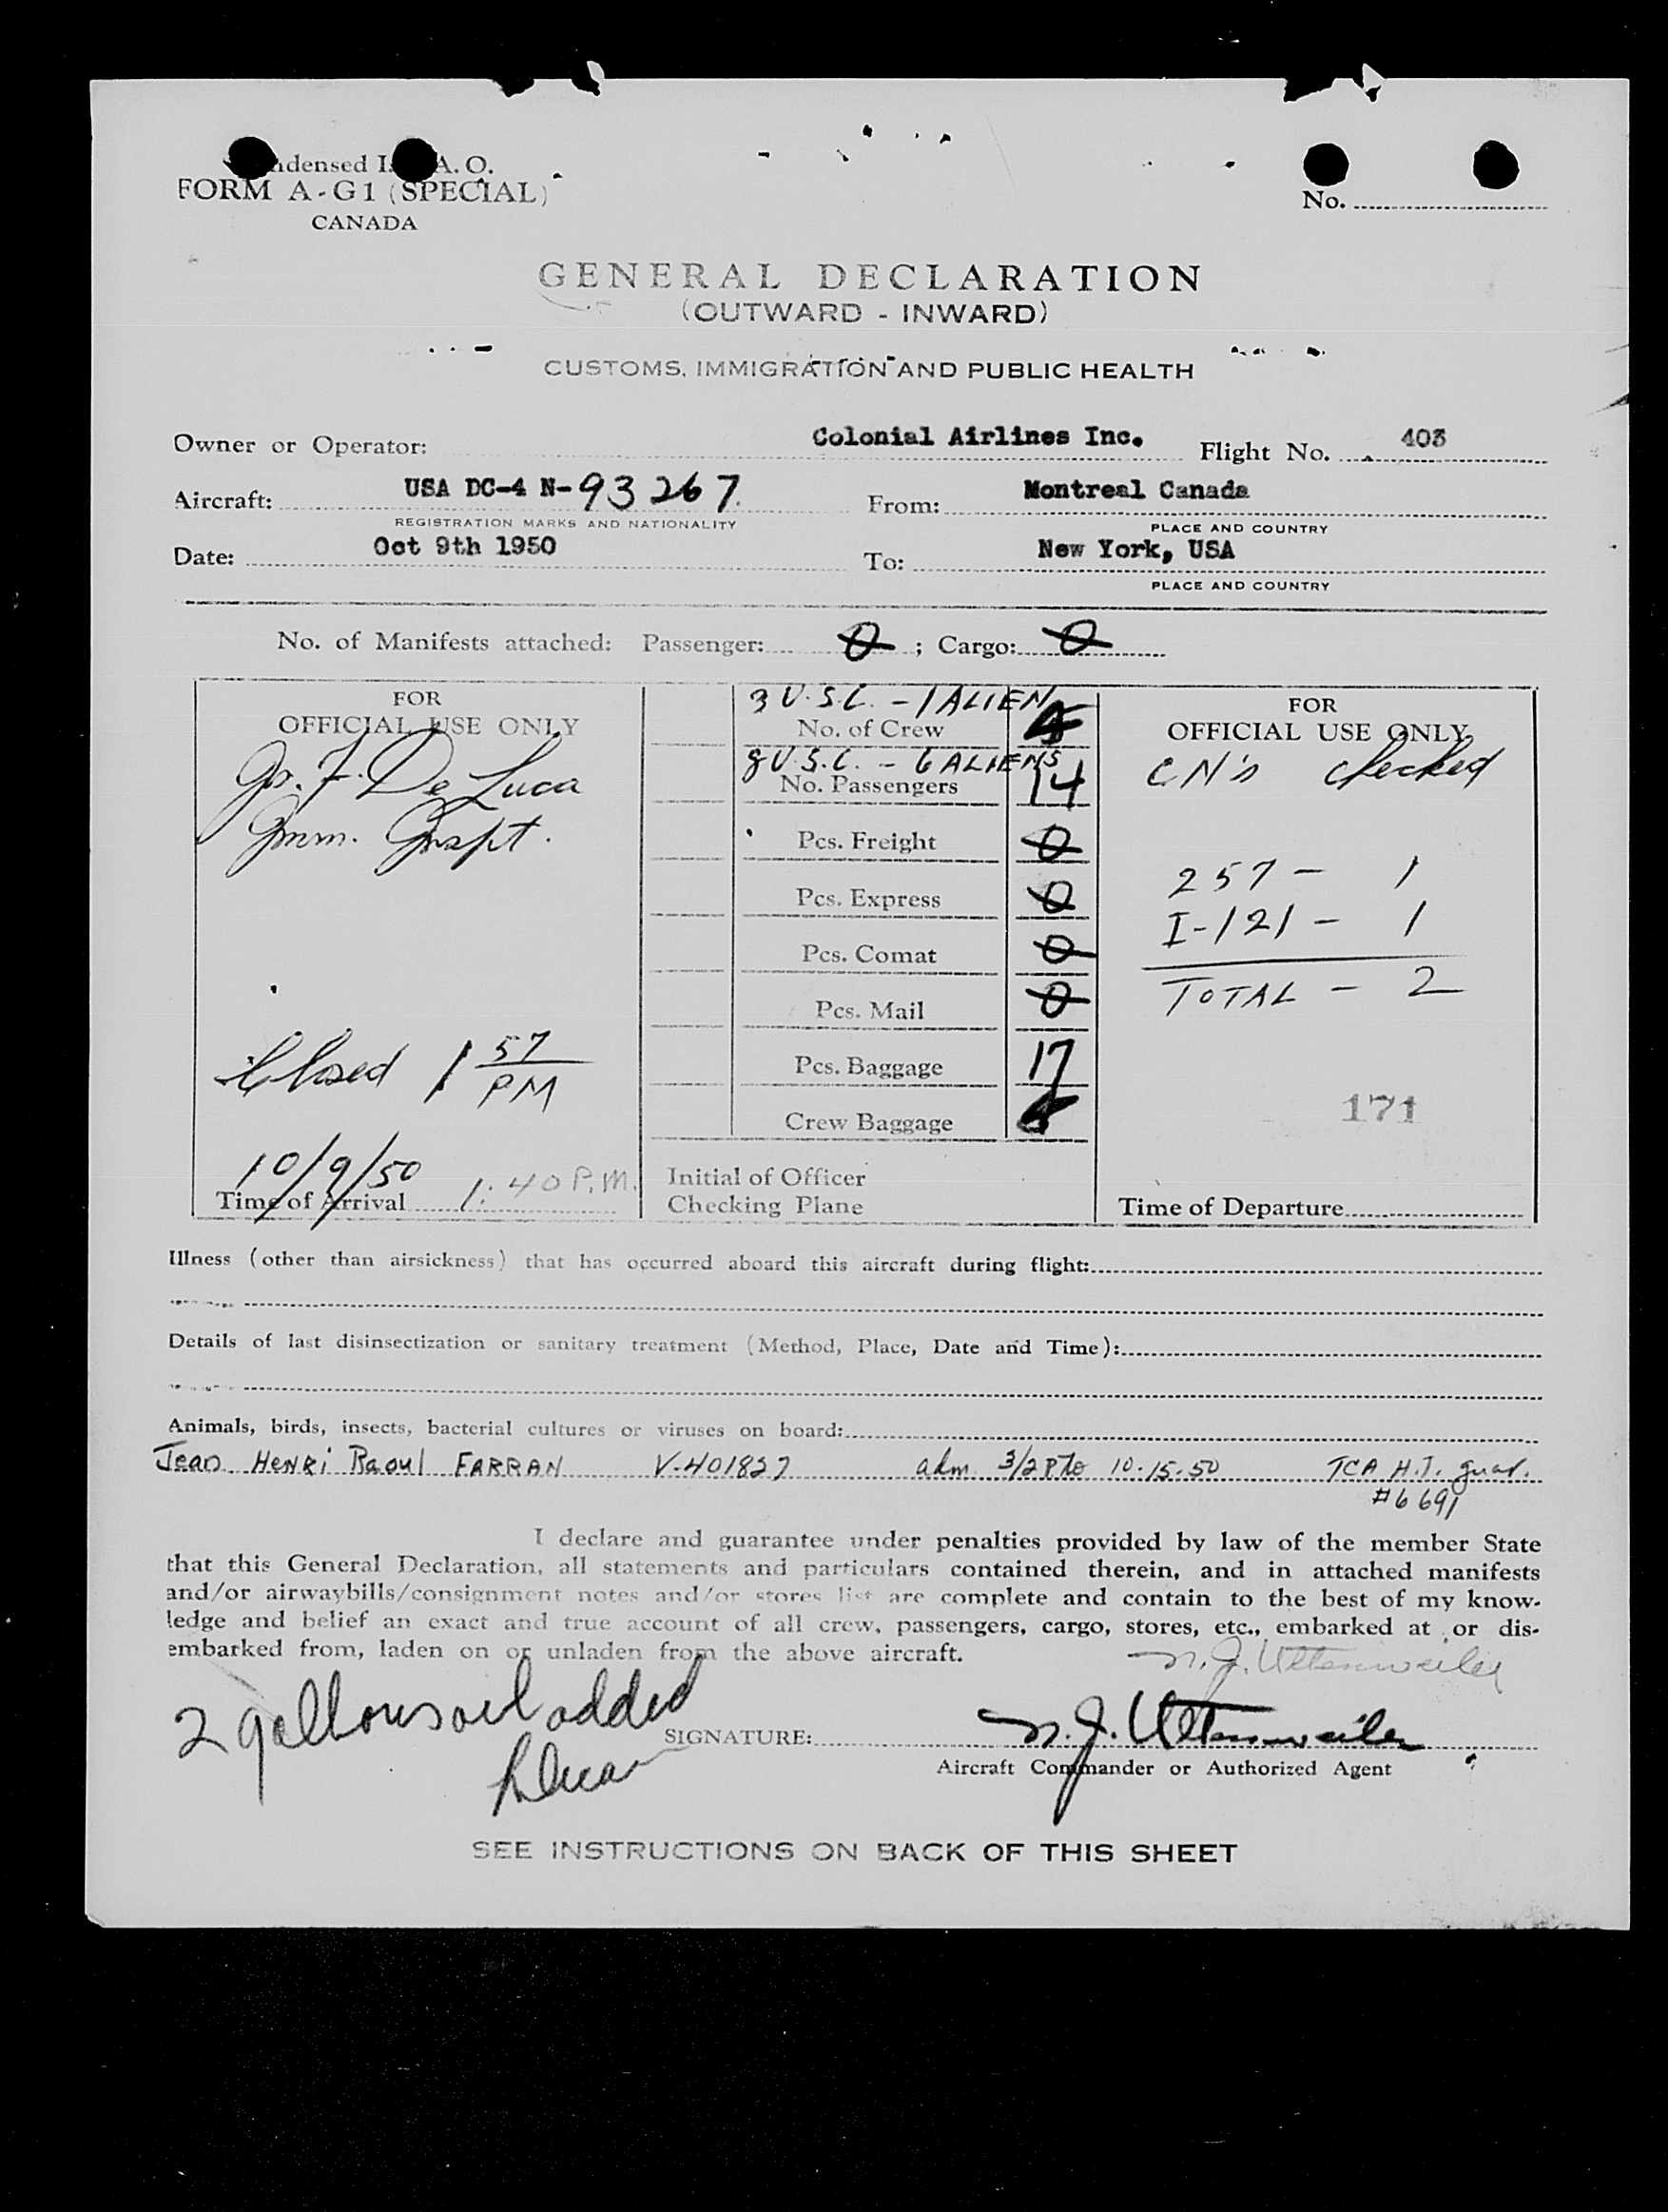 Condensed I. A. O.
FORM A-G1 (SPECIAL)
CANADA
No.
GENERAL DECLARATION
(OUTWARD - INWARD)
CUSTOMS, IMMIGRATION AND PUBLIC HEALTH
Owner or Operator: Colonial Airlines Inc. Flight No. 403
Aircraft: USA DC-4 N-93267 From: Montreal Canada
REGISTRATION MARKS AND NATIONALITY PLACE AND COUNTRY
Date: Oct 9th 1950 To: New York, USA
PLACE AND COUNTRY
No. of Manifests attached: Passenger: 0 ; Cargo: 0
FOR
OFFICIAL USE ONLY
Jos. F. De Luca
Imm. Inspt.
Closed 1 57
PM
10/9/50
Time of Arrival 1:40 P.M.
3 U.S.C. - 1 ALIEN
No. of Crew
8 U.S.C. - 6 ALIENS
No. Passengers 14
Pcs. Freight 0
Pcs. Express 0
Pcs. Comat 0
Pcs. Mail 0
Pcs. Baggage 17
Crew Baggage
Initial of Officer
Checking Plane
FOR
OFFICIAL USE ONLY
CN's checked
257 - 1
I-121 - 1
TOTAL - 2
171
Time of Departure
Illness (other than airsickness) that has occurred aboard this aircraft during flight:
Details of last disinsectization or sanitary treatment (Method, Place, Date and Time):
Animals, birds, insects, bacterial cultures or viruses on board:
Jean Henri Raoul FARRAN V-401827 adm 3/2 to 10-15-50 TCA H.T. guar.
#6691
I declare and guarantee under penalties provided by law of the member State
that this General Declaration, all statements and particulars contained therein, and in attached manifests
and/or airwaybills/consignment notes and/or stores list are complete and contain to the best of my know-
ledge and belief an exact and true account of all crew, passengers, cargo, stores, etc., embarked at or dis-
embarked from, laden on or unladen from the above aircraft.
N. J. Uttenweiler
2 gallons oil added
SIGNATURE: N. J. Uttenweiler
Aircraft Commander or Authorized Agent
SEE INSTRUCTIONS ON BACK OF THIS SHEET